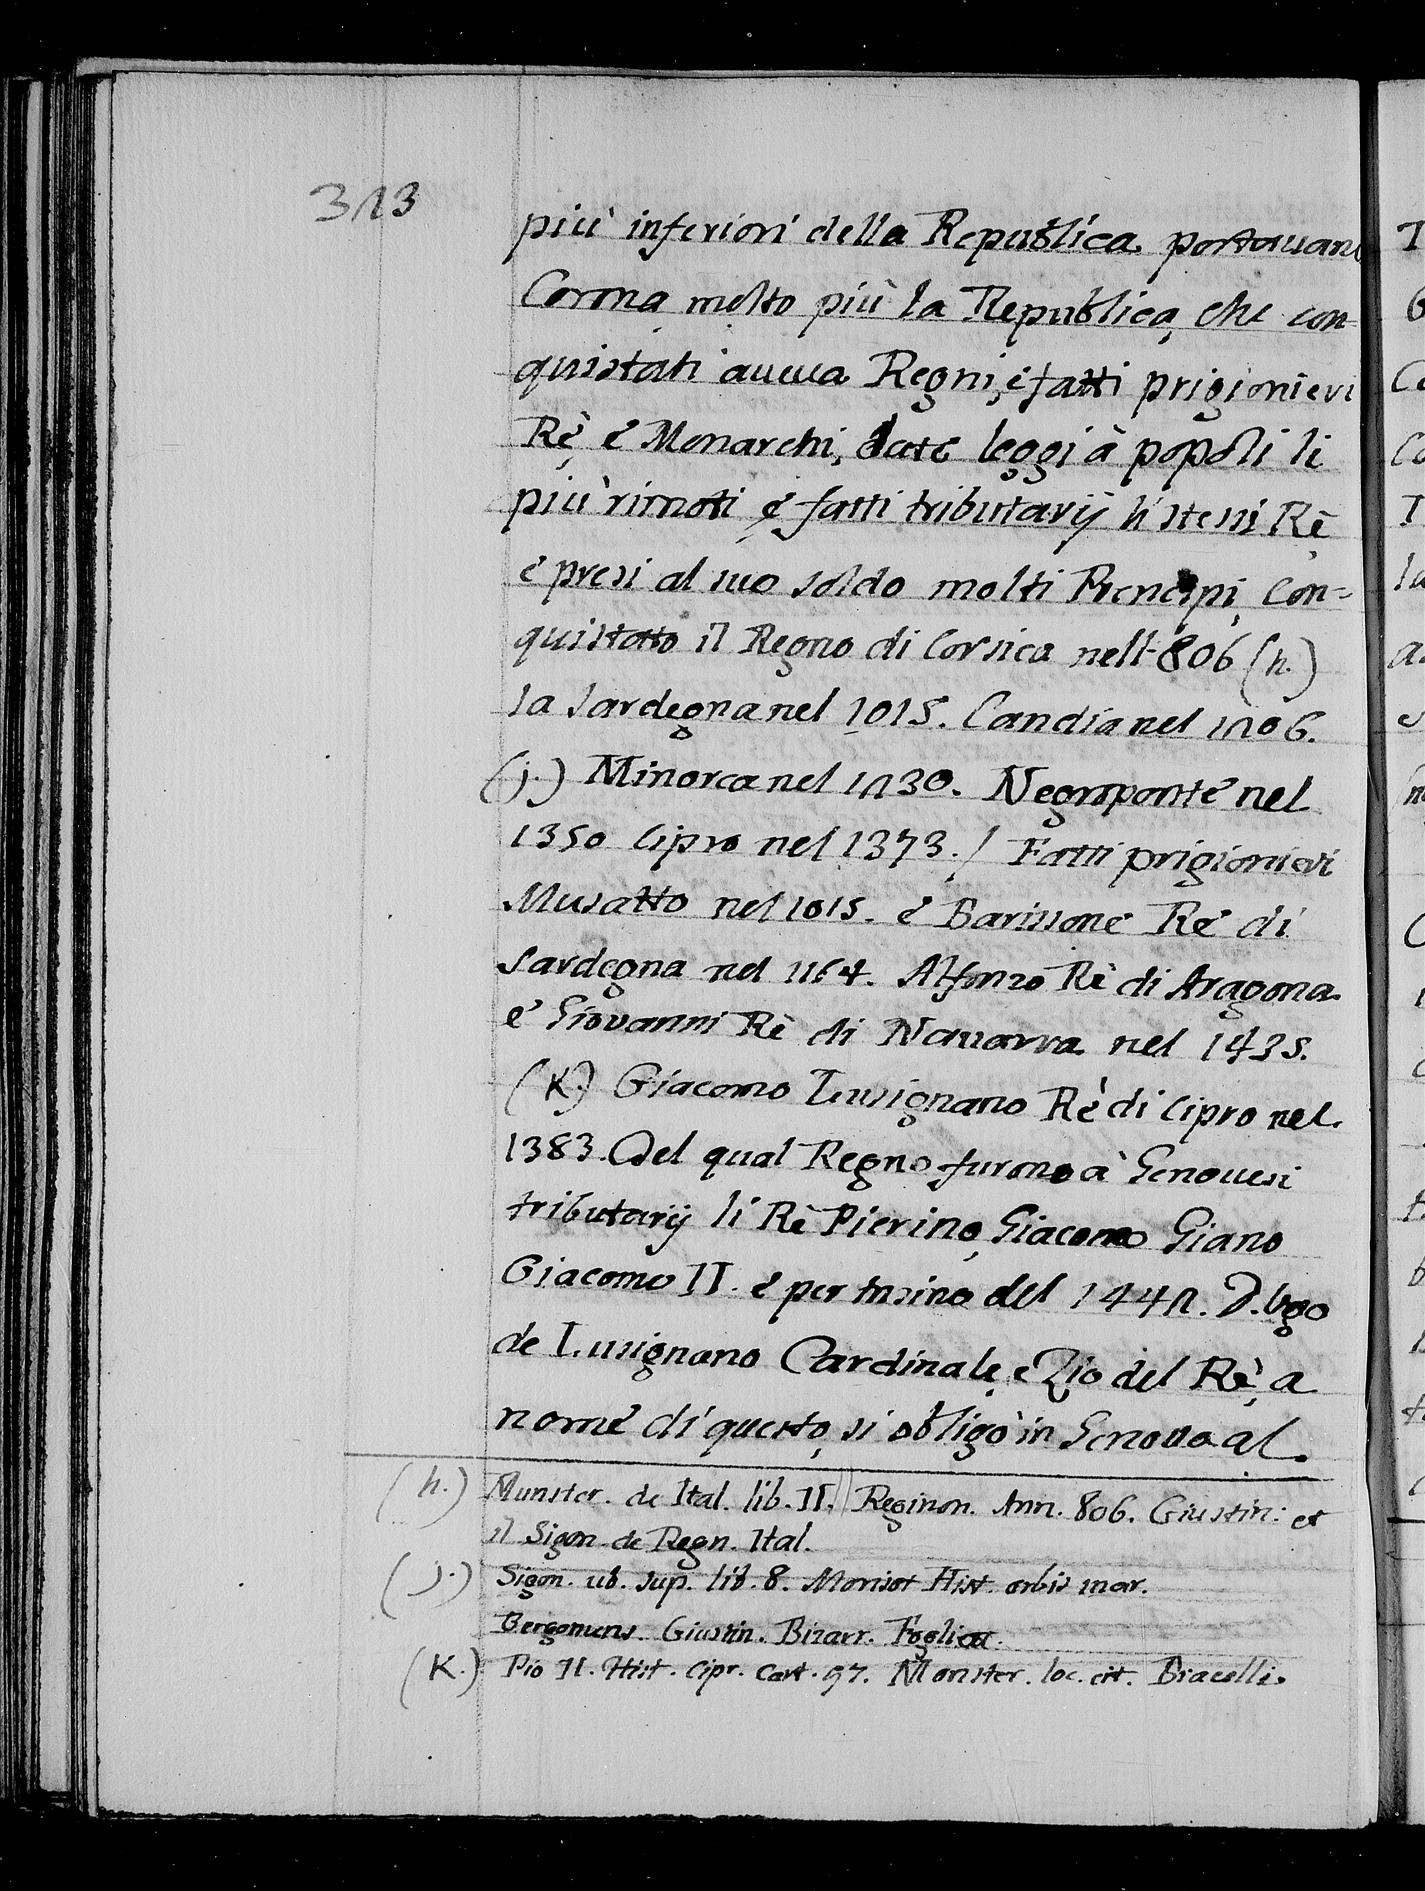 323
più inferiori della Republica portauano
Corona molto più la Republica, che con-
quistati aueua Regni, è fatti prigionieri
Rè, è Monarchi, date leggi à popoli li
più rimoti è fatti tributarij li stessi Rè
è presi al suo soldo molti Prencipi, Con=
quistato il Regno di Corsica nell' 806 (h.)
la Sardegna nel 1015. Candia nel 1206.
(j.) Minorca nel 1230. Negroponte nel
1350 Cipro nel 1373./ Fatti prigionieri
Musatto nel 1015. è Barissone Rè di
Sardegna nel 1164. Alfonzo Rè di Aragona
è Giovanni Rè di Nauarra nel 1435.
(K.) Giacomo Lusignano Rè di Cipro nel
1383. Del qual Regno furono à Genouesi
tributarij li Rè Pierino, Giacomo Giano
Giacomo II. è per insino del 1442. D. Ugo
de Lusignano Cardinale, e Zio del Rè, a
nome di questo, si obligò in Genova al
(h.) Munster. de Ital. lib. II. Reginon. Ann. 806. Giustin: et
il Sigon. de Regn. Ital.
(j.) Sigon. ub. sup. lib. 8. Morisot Hist. orbis mar.
Bergomens. Giustin. Bizarr. Foglieta.
(K.) Pio II. Hist. Cipr. Cart. 97. Monster. loc. cit. Bracelli.